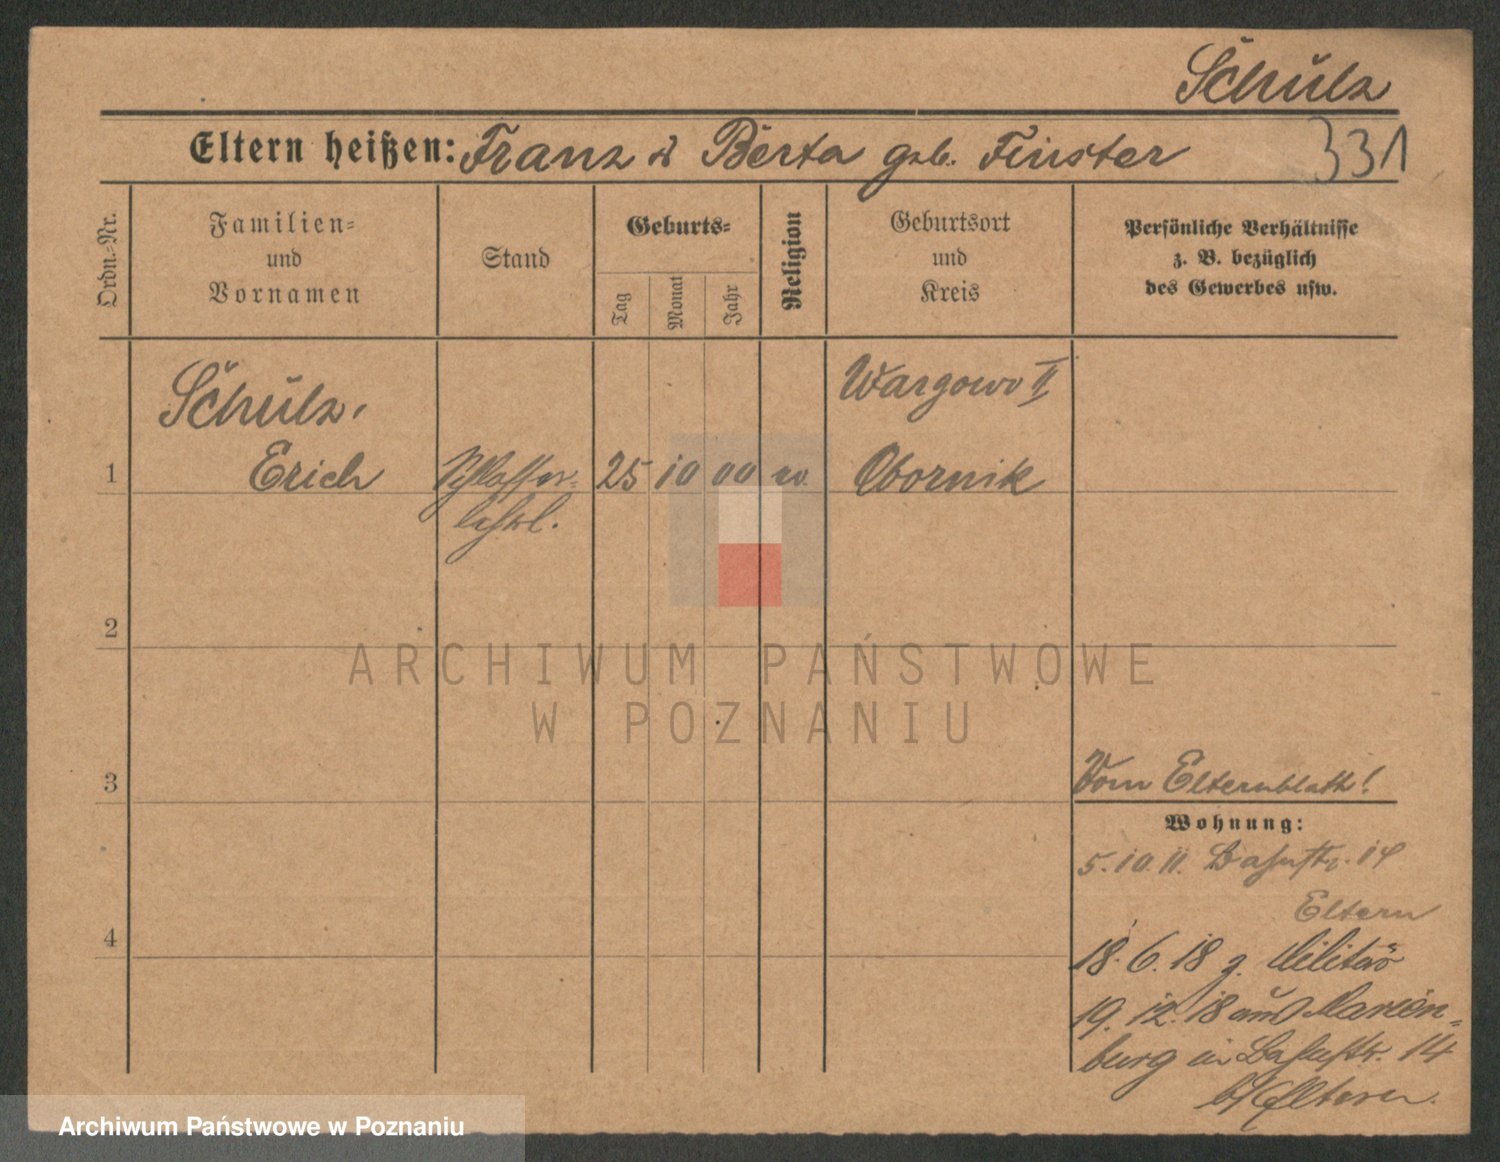 Schulz
Eltern heißen: Franz & Berta geb. Finster 331
Ordn.-Nr.
Familien=
und
Vornamen
Stand
Geburts=
Tag
Monat
Jahr
Religion
Geburtsort
und
Kreis
Persönliche Verhältnisse
z. B. bezüglich
des Gewerbes usw.
Schulz, Wargowo II
1 Erich Schlosser= 25 10 00 ev. Obornik
lehrl.
2
ARCHIWUM PAŃSTWOWE
W POZNANIU
3
Vom Elternblatt!
Wohnung:
5.10.11. Bahnstr. 14
Eltern
4
18.6.18 z. Militär
19.12.18 aus Marien=
burg in Bahnstr. 14
b/Eltern.
Archiwum Państwowe w Poznaniu